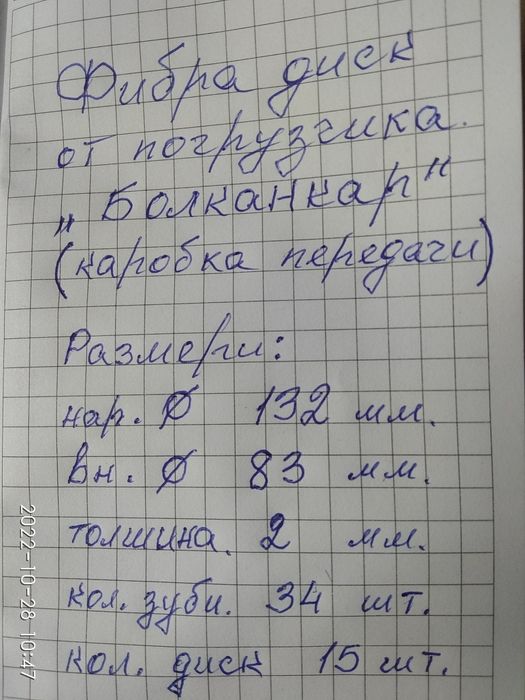 Фибра диск
от погрузчика.
„Болканкар"
(каробка передачи)
Размери:
нар. Ø 132 мм.
вн. Ø 83 мм.
толшина. 2 мм.
кол. зуби. 34 шт.
кол. диск 15 шт.
2022-10-28 10:47